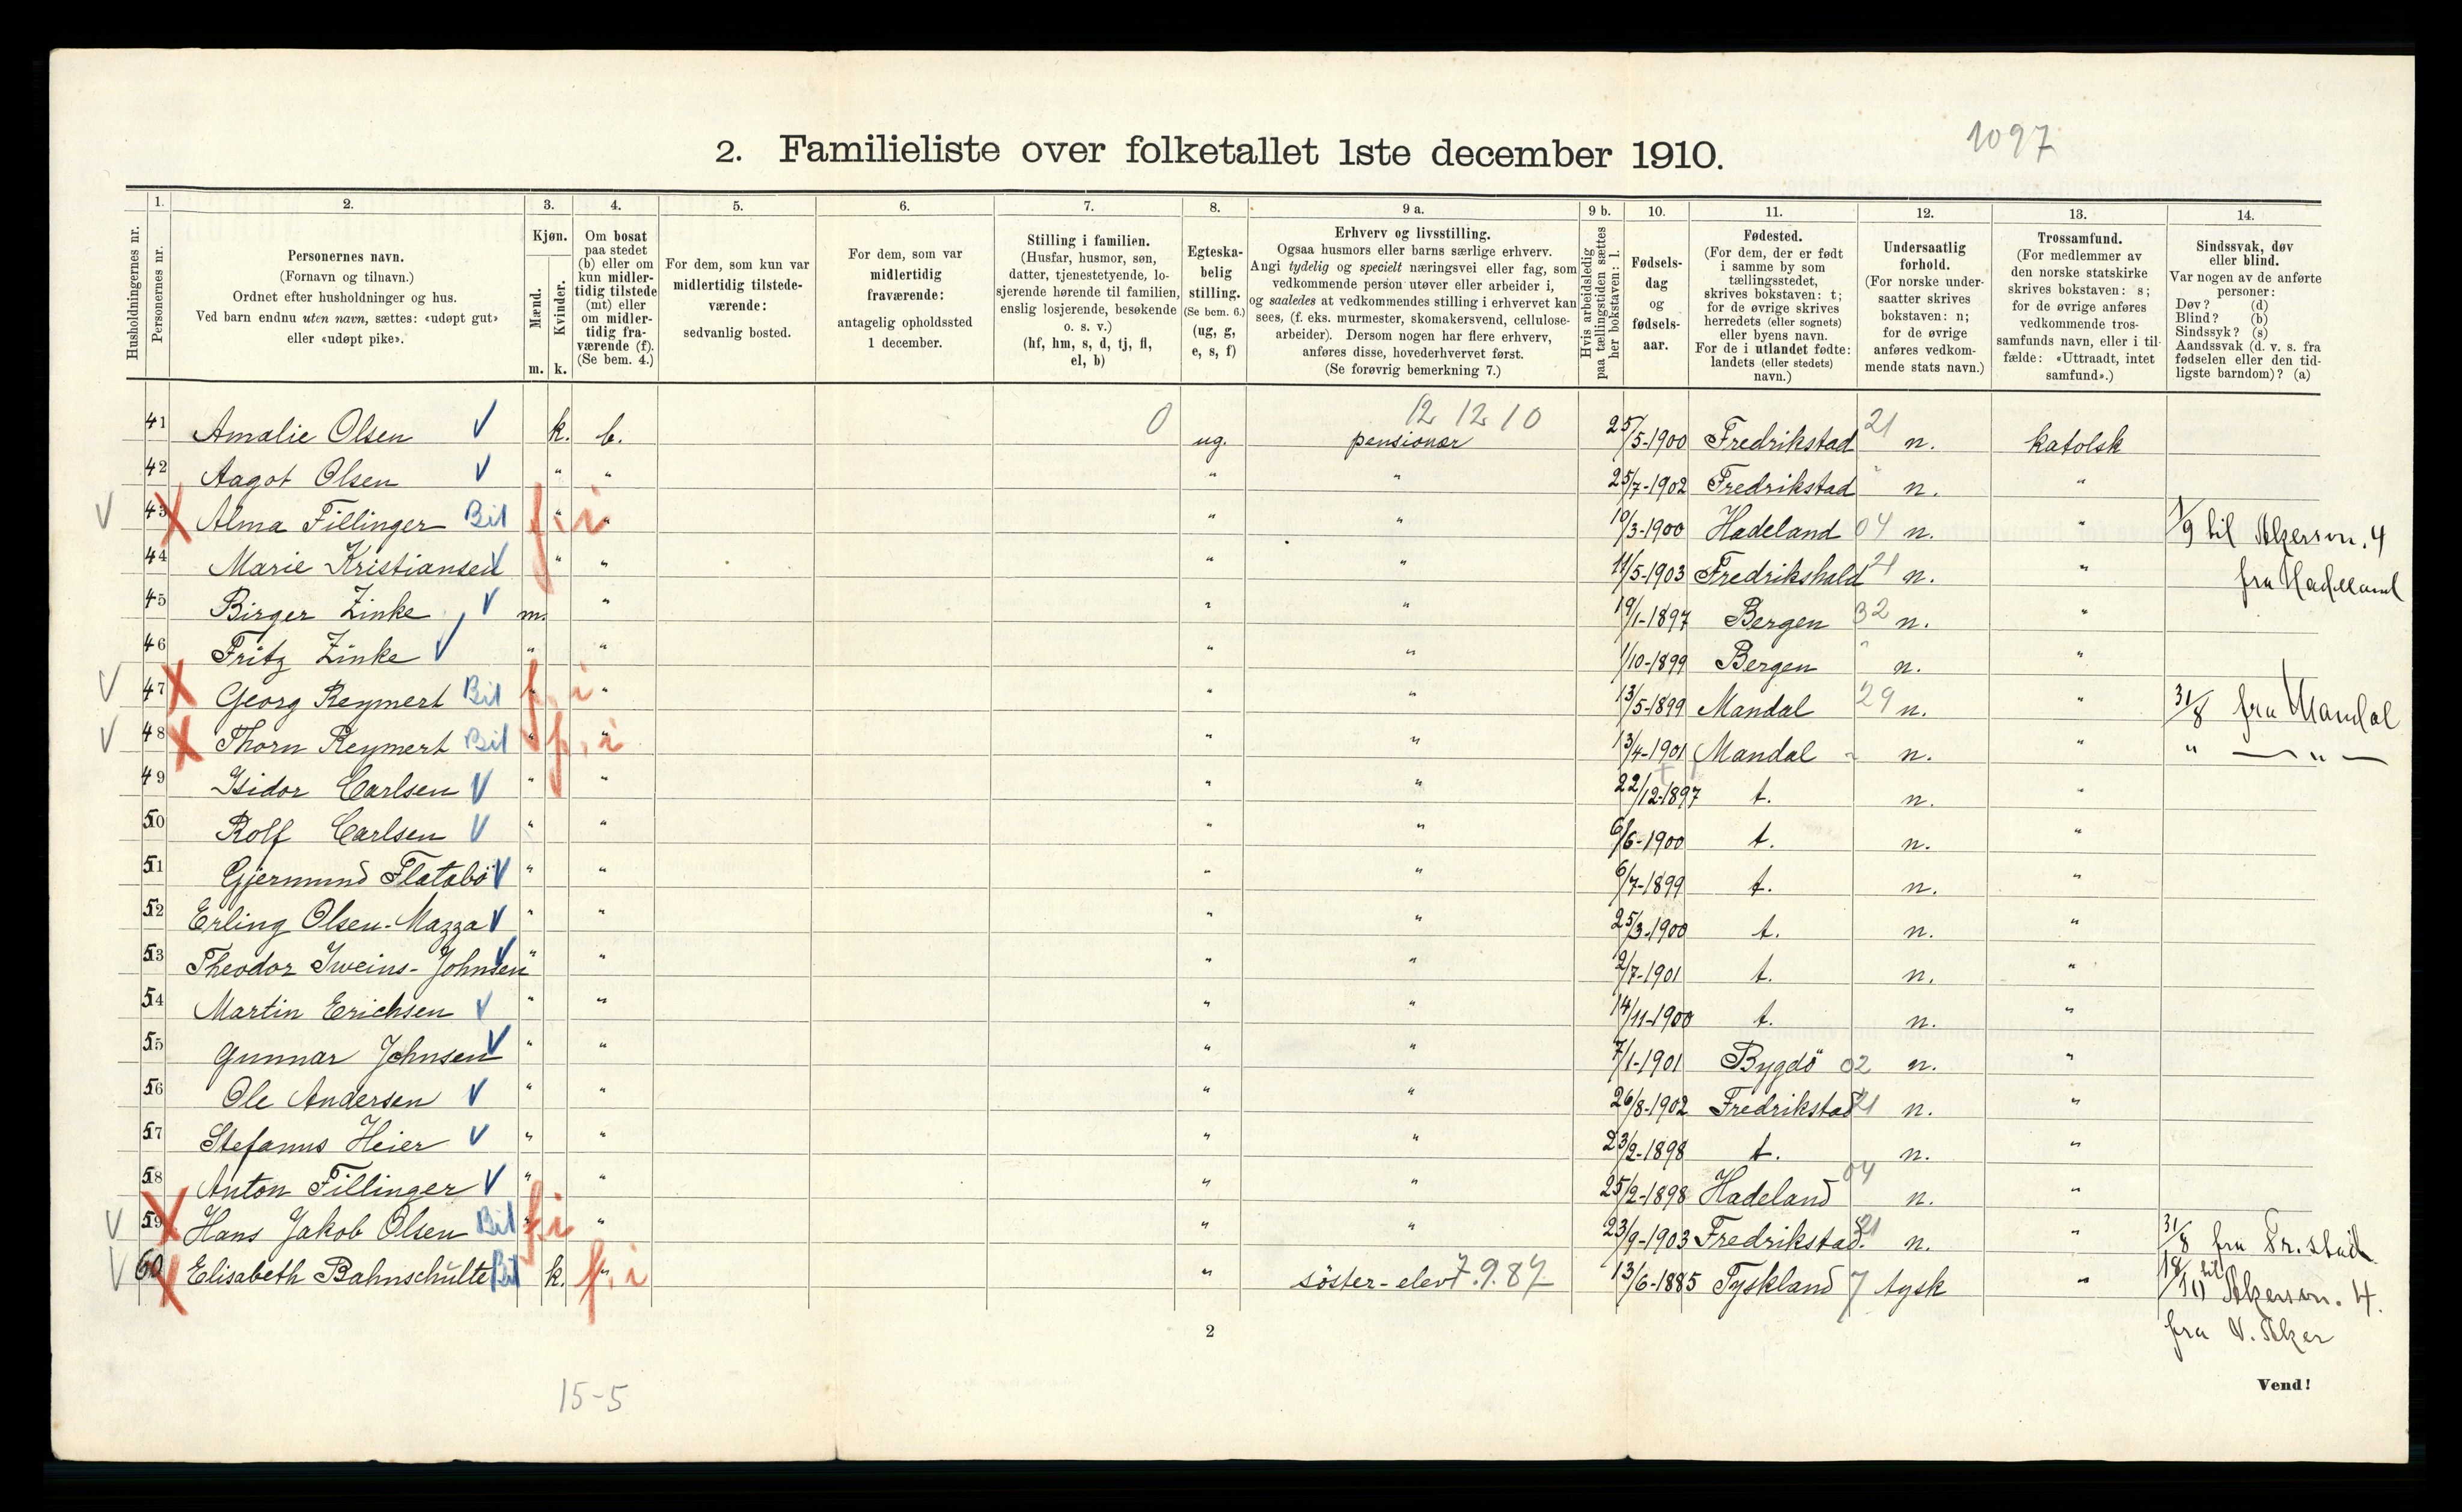 1097
2. Familieliste over folketallet 1ste december 1910.
1. 2. 3. 4. 5. 6. 7. 8. 9 a. 9 b. 10. 11. 12. 13. 14.
Husholdningernes nr.
Personernes nr.
Personernes navn.
(Fornavn og tilnavn.)
Ordnet efter husholdninger og hus.
Ved barn endnu uten navn, sættes: «udøpt gut»
eller «udøpt pike».
Kjøn.
Mænd.
Kvinder.
m. k.
Om bosat
paa stedet
(b) eller om
kun midler-
tidig tilstede
(mt) eller
om midler-
tidig fra-
værende (f).
(Se bem. 4.)
For dem, som kun var
midlertidig tilstede-
værende:
sedvanlig bosted.
For dem, som var
midlertidig
fraværende:
antagelig opholdssted
1 december.
Stilling i familien.
(Husfar, husmor, søn,
datter, tjenestetyende, lo-
sjerende hørende til familien,
enslig losjerende, besøkende
o. s. v.)
(hf, hm, s, d, tj, fl,
el, b)
Egteska-
belig
stilling.
(Se bem. 6.)
(ug, g,
e, s, f)
Erhverv og livsstilling.
Ogsaa husmors eller barns særlige erhverv.
Angi tydelig og specielt næringsvei eller fag, som
vedkommende person utøver eller arbeider i,
og saaledes at vedkommendes stilling i erhvervet kan
sees, (f. eks. murmester, skomakersvend, cellulose-
arbeider). Dersom nogen har flere erhverv,
anføres disse, hovederhvervet først.
(Se forøvrig bemerkning 7.)
Hvis arbeidsledig
paa tællingstiden sættes
her bokstaven: l.
Fødsels-
dag
og
fødsels-
aar.
Fødested.
(For dem, der er født
i samme by som
tællingsstedet,
skrives bokstaven: t;
for de øvrige skrives
herredets (eller sognets)
eller byens navn.
For de i utlandet fødte:
landets (eller stedets)
navn.)
Undersaatlig
forhold.
(For norske under-
saatter skrives
bokstaven: n;
for de øvrige
anføres vedkom-
mende stats navn.)
Trossamfund.
(For medlemmer av
den norske statskirke
skrives bokstaven: s;
for de øvrige anføres
vedkommende tros-
samfunds navn, eller i til-
fælde: «Uttraadt, intet
samfund».)
Sindssvak, døv
eller blind.
Var nogen av de anførte
personer:
Døv? (d)
Blind? (b)
Sindssyk? (s)
Aandssvak (d. v. s. fra
fødselen eller den tid-
ligste barndom)? (a)
0 12 12 10
41 Amalie Olsen V k. b. ug. pensionær 25/5-1900 Fredrikstad 21 n. katolsk
42 Aagot Olsen V " " " " 25/7-1902 Fredrikstad " n. "
V 43 X Alma Fillinger Bil f.i " " " " 10/3-1900 Hadeland 04 n. " 1/9 til Akersvn. 4
44 Marie Kristiansen V " " " " 11/5-1903 Fredrikshald 21 n. " fra Hadeland
45 Birger Zinke V m. " " " 19/1-1897 Bergen 32 n. "
46 Fritz Zinke V " " " " 1/10-1899 Bergen " n. "
V 47 X Georg Reymert Bil f.i " " " " 13/5-1899 Mandal 29 n. " 31/8 fra Mandal
V 48 X Thorn Reymert Bil f.i " " " " 13/4-1901 Mandal " n. " " — " —
49 Isidor Carlsen V " " " " 22/12-1897 t. n. "
50 Rolf Carlsen V " " " " 6/6-1900 t. n. "
51 Gjermund Flatabö V " " " " 6/7-1899 t. n. "
52 Erling Olsen-Mazza V " " " " 25/3-1900 t. n. "
53 Theodor Iweins-Johnsen V " " " " 2/7-1901 t. n. "
54 Martin Erichsen V " " " " 14/11-1900 t. n. "
55 Gunnar Johnsen V " " " " 7/1-1901 Bygdö 02 n. "
56 Ole Andersen V " " " " 26/8-1902 Fredrikstad 21 n. "
57 Stefanus Heier V " " " " 23/2-1898 t. n. "
58 Anton Fillinger V " " " " 25/2-1898 Hadeland 04 n. "
V 59 X Hans Jakob Olsen Bil f.i " " " " 23/9-1903 Fredrikstad. 21 n. " 31/8 fra Fr.stad
V 60 X Elisabeth Bahnschulte Bil k. f.i " " söster-elev 7.9.87 13/6-1885 Tyskland 7 tysk " 18/10 til Akersvn. 4.
fra V. Aker
2
15-5
Vend!